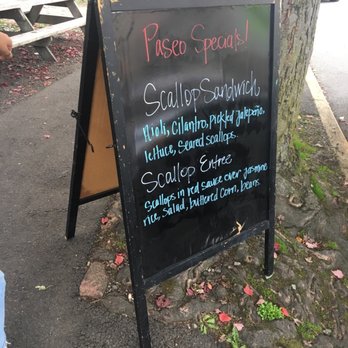 Paseo Specials!
Scallop Sandwich
Aioli, Cilantro, Pickled Jalepeño,
lettuce, Seared scallops.
Scallop Entree
Scallops in red sauce over Jasmine
rice, Salad, buttered corn, beans